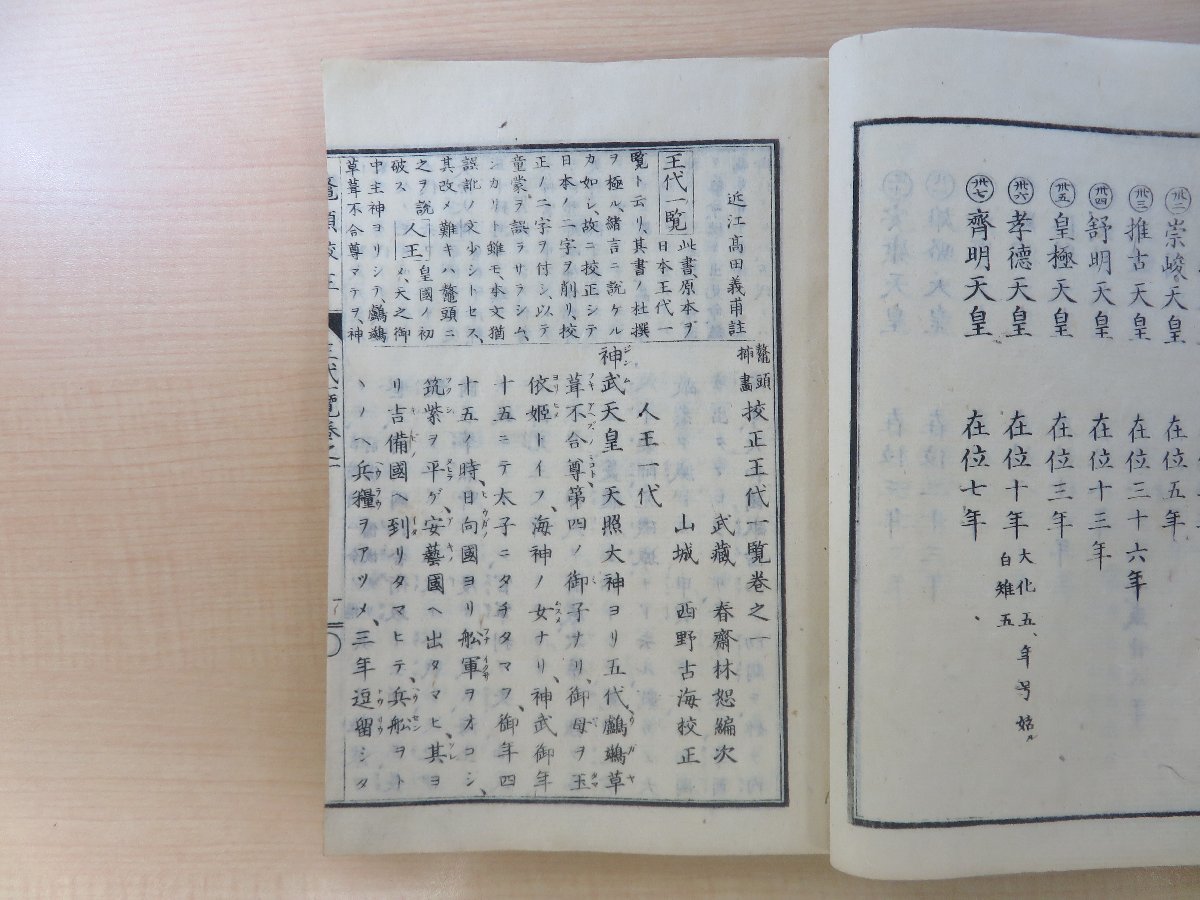 㐧二 崇峻天皇 在位五年
㐧三 推古天皇 在位三十六年
卅四 舒明天皇 在位十三年
卅五 皇極天皇 在位三年
卅六 孝德天皇 在位十年 大化五、年号始ル 白雉五、
卅七 齊明天皇 在位七年
近江髙田義甫註
王代一覧 此書、原本ヲ
日本王代一
覧ト云リ、其書ノ杜撰
ヲ極ル、緒言ニ說ケル
カ如シ、故ニ挍正シテ
日本ノ二字ヲ削リ、挍
正ノ二字ヲ付シ、以テ
童蒙ヲ誤ラサラシム、
シカリト雖モ、本文猶
誤訛ノ文少シトセス、
其改メ難キハ鼇頭ニ
之ヲ說
破ス 人王 皇國ノ初
メ、天之御
中主神ヨリシテ、鸕鷀
草葺不合尊マテヲ、神
鼇頭挿畫 挍正王代一覧卷之一
武藏 春齋林恕編次
山城 西野古海挍正
人王一代
神武天皇 天照大神ヨリ五代、鸕鷀草
葺不合尊第四ノ御子ナリ、御母ヲ玉
依姬トイフ、海神ノ女ナリ、神武御年
十五ニテ太子ニタチタマヲ、御年四
十五ノ時、日向國ヨリ船軍ヲオコシ、
筑紫ヲ平ゲ、安藝國ヘ出タマヒ、其ヨ
リ吉備國ヘ到リタマヒテ、兵船ヲト
ヽノヘ、兵糧ヲアツメ、三年逗留シタ